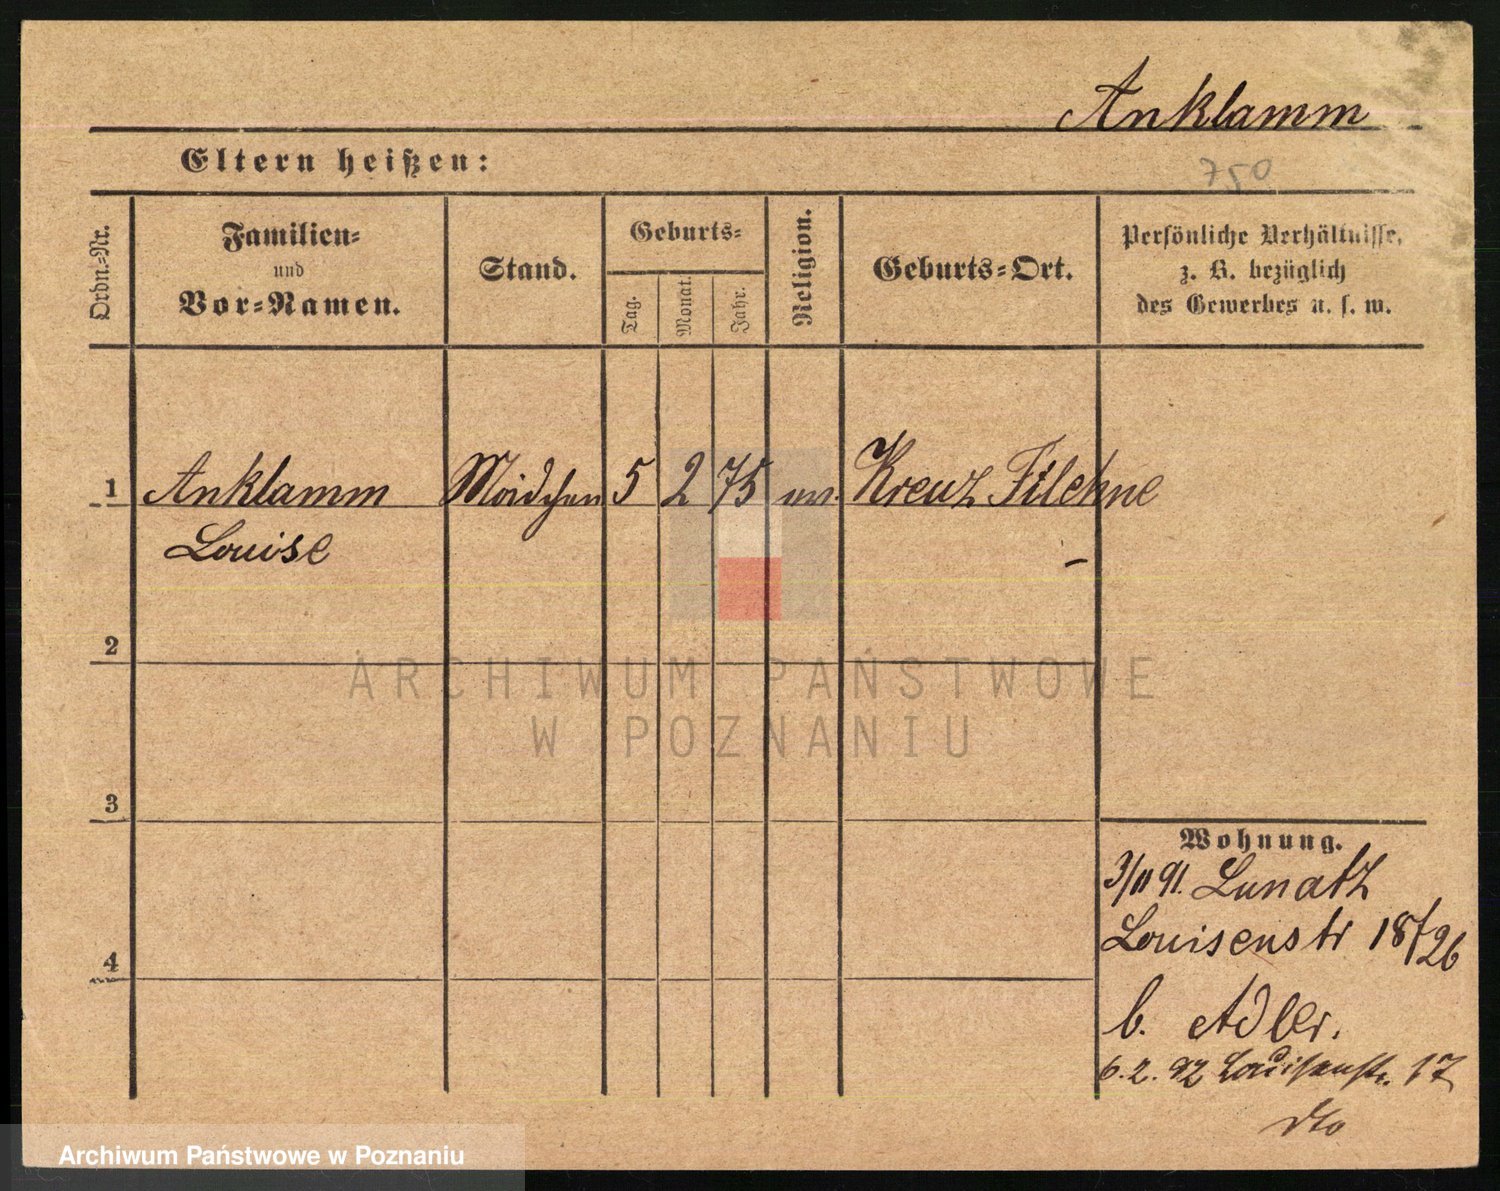 Anklamm
Eltern heißen:
750
Ordn.-Nr.
Familien-
und
Vor-Namen.
Stand.
Geburts-
Tag.
Monat.
Jahr.
Religion.
Geburts-Ort.
Persönliche Verhältnisse,
z. B. bezüglich
des Gewerbes u. s. w.
1 Anklamm Mädchen 5 2 75 Kreuz Filehne
Louise
2
3
4
Wohnung.
3/11 91. Lunatz
Louisenstr 18/26
b. Adler.
6.2.92 Louisenstr. 17
dto
ARCHIWUM PAŃSTWOWE
W POZNANIU
Archiwum Państwowe w Poznaniu